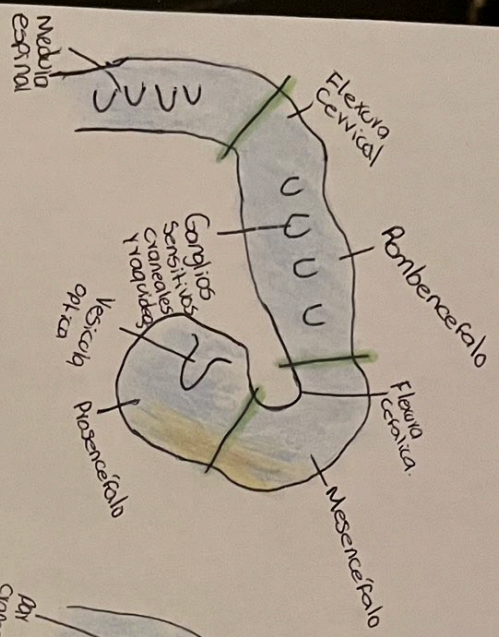 Medula
espinal
Flexura
Cervical
Rombencefalo
Ganglios
sensitivos
craneales
y raquideos
Vesicula
optica
Prosencéfalo
Flexura
cefalica.
Mesencéfalo
Par